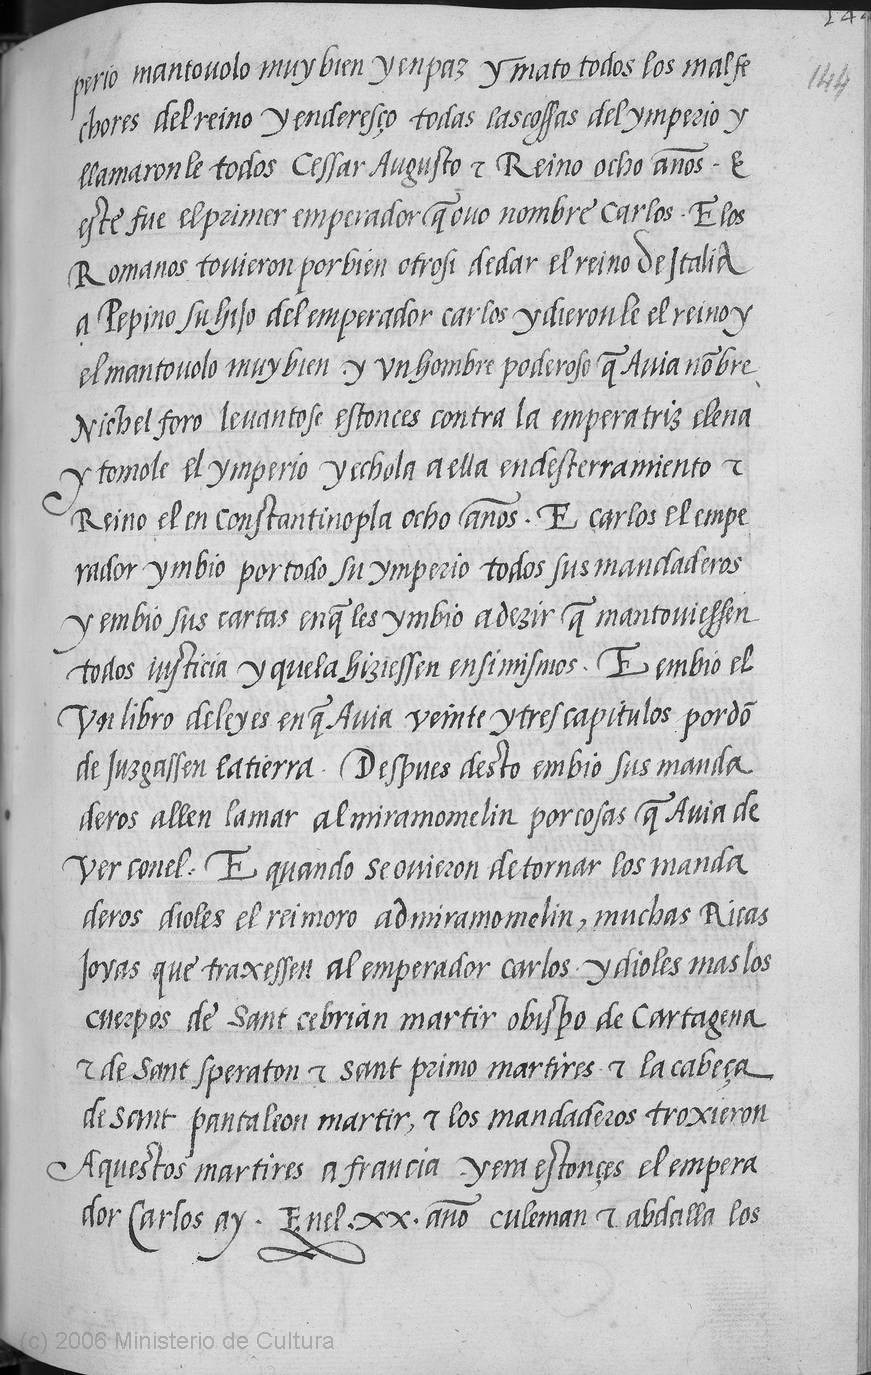 144
144
perio mantouolo muy bien y en paz y mato todos los malfe
chores del reino y enderesço todas las cossas del ymperio y
llamaronle todos Cessar Augusto τ Reino ocho años - E
este fue el primer emperador q̃ ouo nombre Carlos. E los
Romanos touieron por bien otrosi de dar el reino de Italia
a Pepino su hijo del emperador carlos y dieronle el reino y
el mantouolo muy bien . y vn hombre poderoso q̃ Auia nõbre
Nichel foro leuantose estonces contra la emperatriz elena
y tomole el ymperio y echola a ella en desterramiento τ
Reino el en Constantinopla ocho años . E carlos el empe
rador ymbio por todo su ymperio todos sus mandaderos
y embio sus cartas en q̃ les ymbio a dezir q̃ mantouiessen
todos iusticia y que la hiziessen en si mismos . E embio el
Vn libro de leyes en q̃ Auia veinte y tres capitulos por dõ
de Juzgassen la tierra . Despues desto embio sus manda
deros allen la mar al miramomelin por cosas q̃ Auia de
Ver con el . E quando se ouieron de tornar los manda
deros dioles el rei moro admiramomelin, muchas Ricas
Joyas que traxessen al emperador carlos . y dioles mas los
cuerpos de Sant cebrian martir obispo de Cartagena
τ de Sant speraton τ sant primo martires τ la cabeça
de sant pantaleon martir, τ los mandaderos troxieron
Aquestos martires a francia . y era estonçes el empera
dor Carlos ay . En el .xx. año culeman τ abdalla los
(c) 2006 Ministerio de Cultura